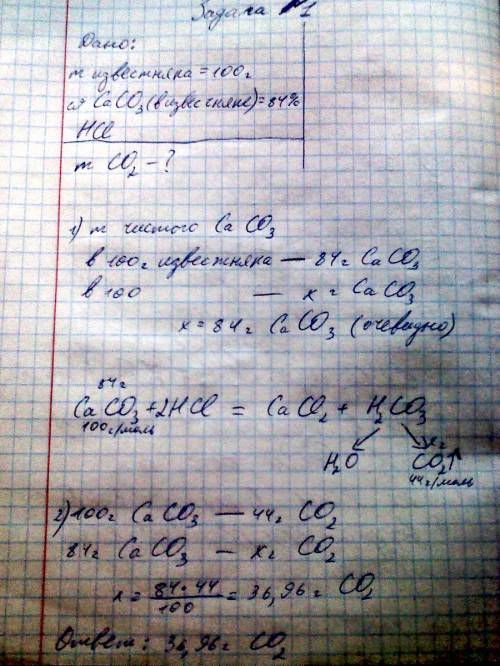 Задача №1
Дано:
m известняка = 100г
ω CaCO₃ (в известняке) = 84%
HCl
m CO₂ - ?
1) m чистого CaCO₃
в 100г известняка — 84г CaCO₃
в 100 — x г CaCO₃
x = 84г CaCO₃ (очевидно)
84г
CaCO₃ + 2HCl = CaCl₂ + H₂CO₃
100г/моль
x г
H₂O CO₂↑
44г/моль
2) 100г CaCO₃ — 44г CO₂
84г CaCO₃ — x г CO₂
x = 84·44/100 = 36,96г CO₂
Ответ: 36,96г CO₂